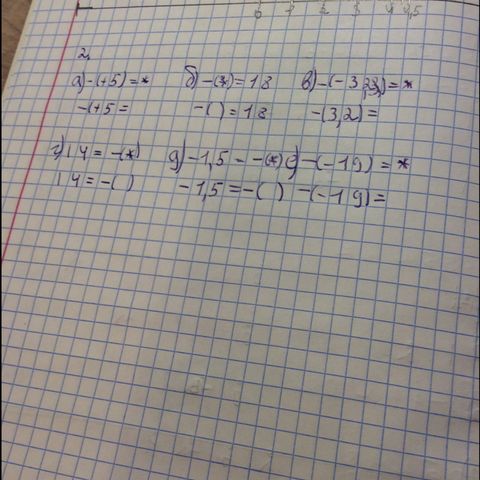 2.
а) -(+5) = * б) -(*) = 18 в) -(-3,2) = *
-(+5 = -( ) = 18 -(3,2) =
г) 14 = -(*) д) -1,5 = -(*) е) -(-19) = *
14 = -( ) -1,5 = -( ) -(-19) =